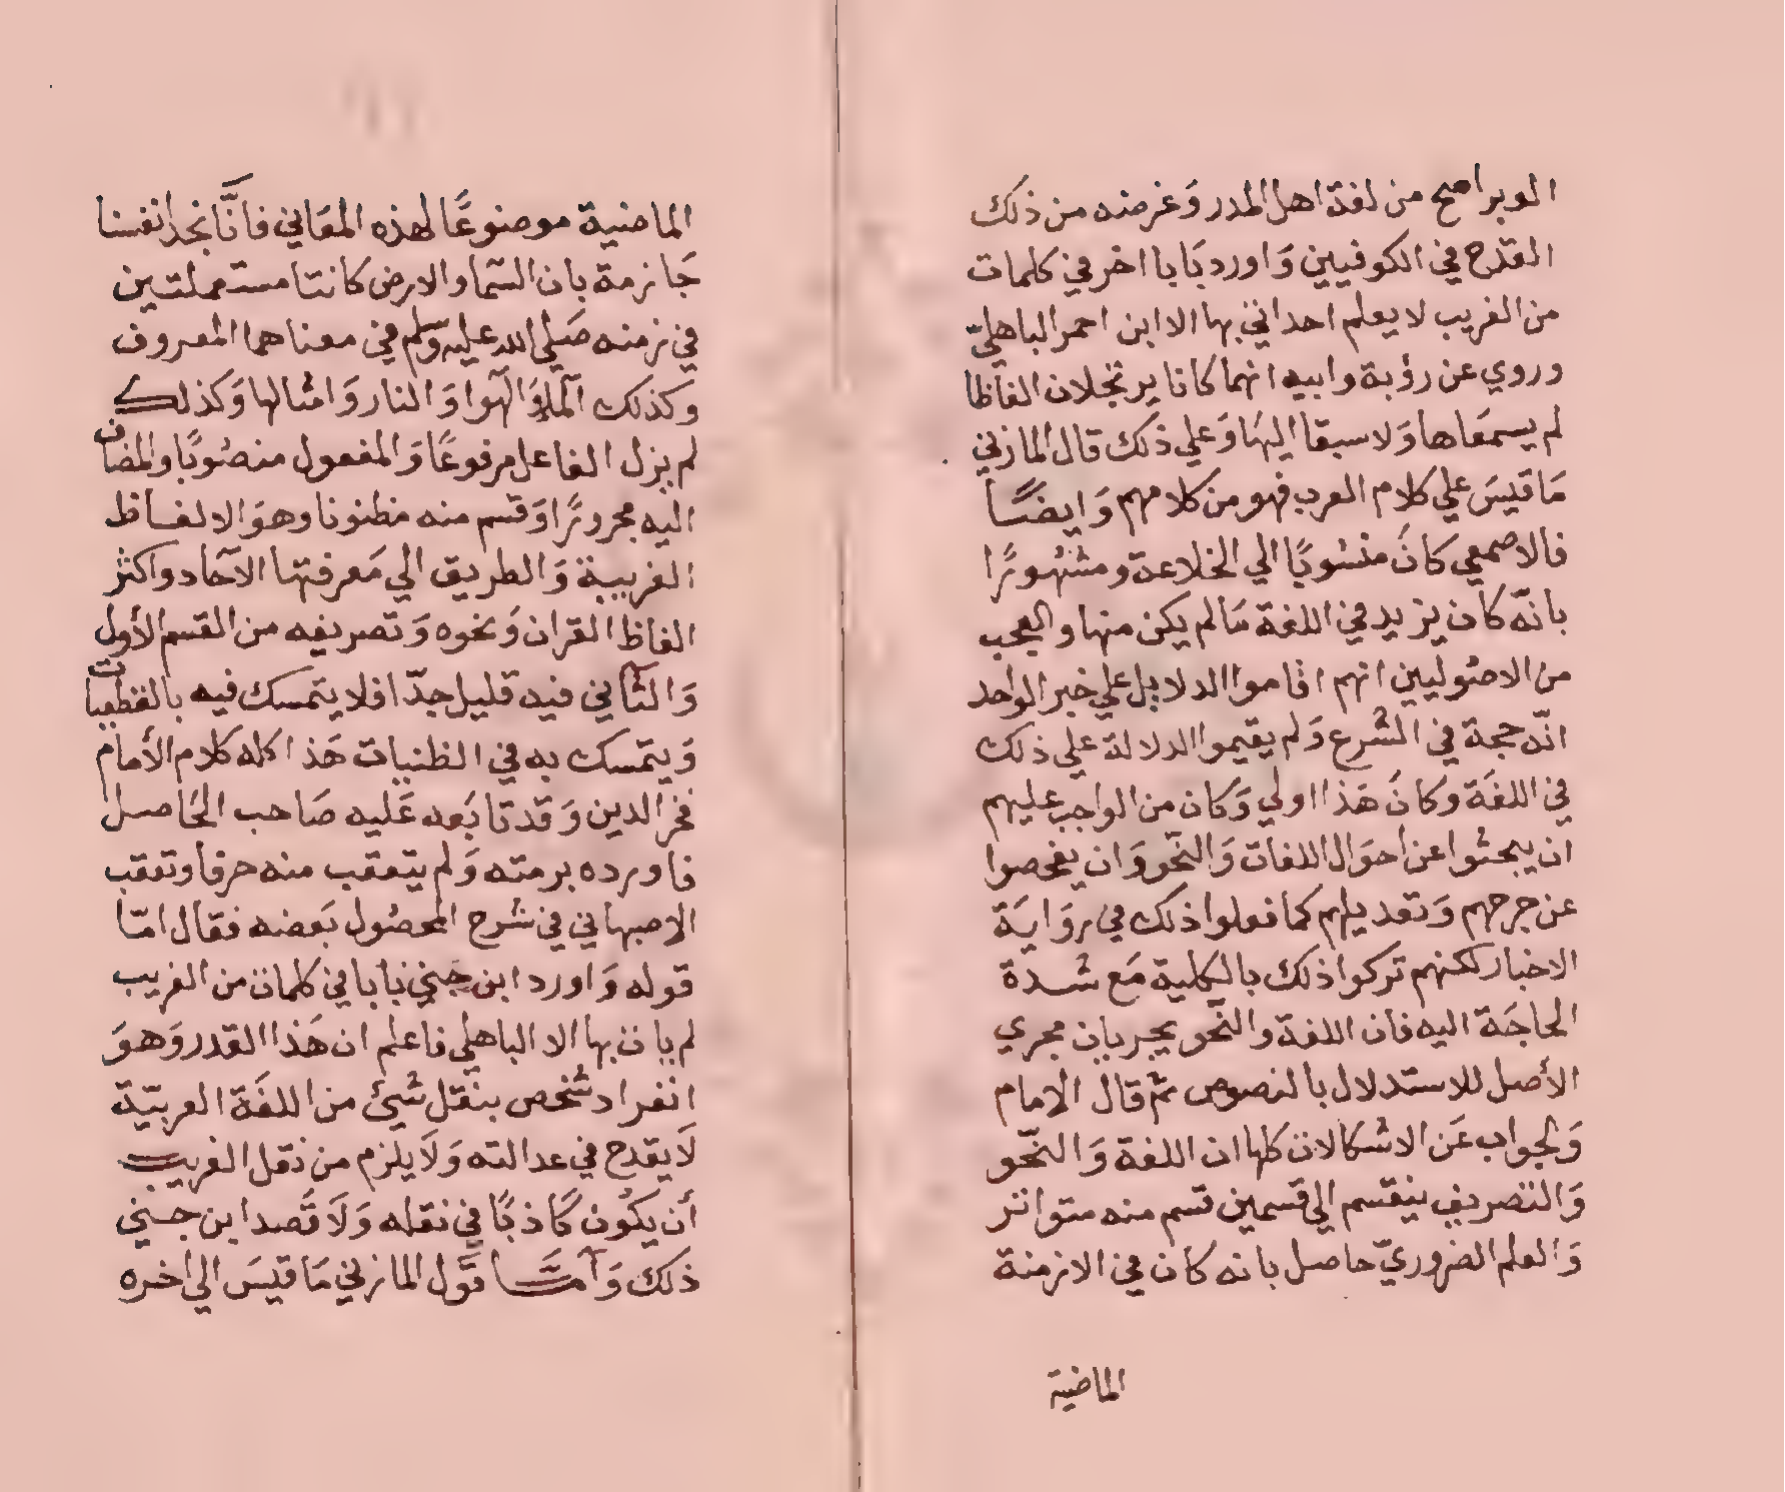 الوبر اصح من لغة اهل المدر وَغرضه من ذلك
القدح في الكوفيين وَاورد بَابا اخر في كلمات
من الغريب لا يعلم احد اتي بها الا ابن احمر الباهليّ
وروي عن رؤبة وابيه انهما كانا يرتجلان الفاظا
لم يسمعَاها وَلا سبقا اليهَا وَعلي ذلك قال المازني
مَا قيسَ علي كلام العرب فهو من كلامهم وَايضًا
فالاصمعي كانَ منسُوبًا الي الخلاعة ومشهُورًا
بانّه كان يزيد في اللغة مَا لم يكن منها والعجب
من الاصُوليين انهم اقاموا الدلايل علي خبر الواحد
انّه حجة في الشرع وَلم يقيموا الدلالة علي ذلك
في اللغَة وكانَ هَذا اولي وَكان من الواجب عليهم
ان يبحثوا عن احوَال اللغات وَالنحّو وَان يفحصوا
عن جرحهم وَتعديلهم كما فعلوا ذلك في روَايَة
الاخبار لكنهم تركوا ذلك بالكلية مَع شدة
الحاجَة اليه فان اللغة والنحّو يجريان مجري
الأصل للاستدلال بالنصوص ثم قال الامام
وَالجواب عَن الاشكالات كلها ان اللغة وَالنحّو
وَالتصريف ينقسم الي قسمين قسم منه متواتر
وَالعلم الضروريّ حاصل بانه كان في الازمنة
الماضية
الماضية موضوعًا لهذه المعَاني فانَّا نجد انفسنا
جَازمة بان السّما والارض كانتا مستعملتين
في زمنه صَلي الله عليه وَسلم في معناهما المعروف
وكذلك المآ وَالهوآ وَالنار وَامثالها وَكذلك
لم يزل الفاعل مرفوعًا وَالمفعول منصُوبًا والمضاف
اليه مجرورًا وَقسم منه مظنونا وهوَ الالفاظ
الغريبة وَالطريق الي مَعرفتها الآحَاد واكثر
الفاظ القران وَنحوه وَتصريفه من القسم الأول
وَالثّاني فيه قليل جدّا فلا يتمسك فيه بالقطعيات
وَيتمسك به في الظنيات هَذا كله كلام الأمام
فخر الدين وَقد تابَعه عَليه صَاحب الحَاصل
فاورده برمته وَلم يتعقب منه حرفا وتعقب
الاصبهاني في شرح المحصُول بَعضه فقال امّا
قوله وَاورد ابن جني بَابا في كلمات من الغريب
لم يات بها الا الباهلي فاعلم ان هَذا القدر وَهوَ
انفراد شخص بنقل شئ من اللغَة العربيّة
لَا يقدح في عدالته وَلَا يلزم من نقل الغريب
أن يكوُن كَاذبًا في نقله وَلَا قَصد ابن جني
ذلك وَأمَّا قَول المازني مَا قيسَ الي اخره